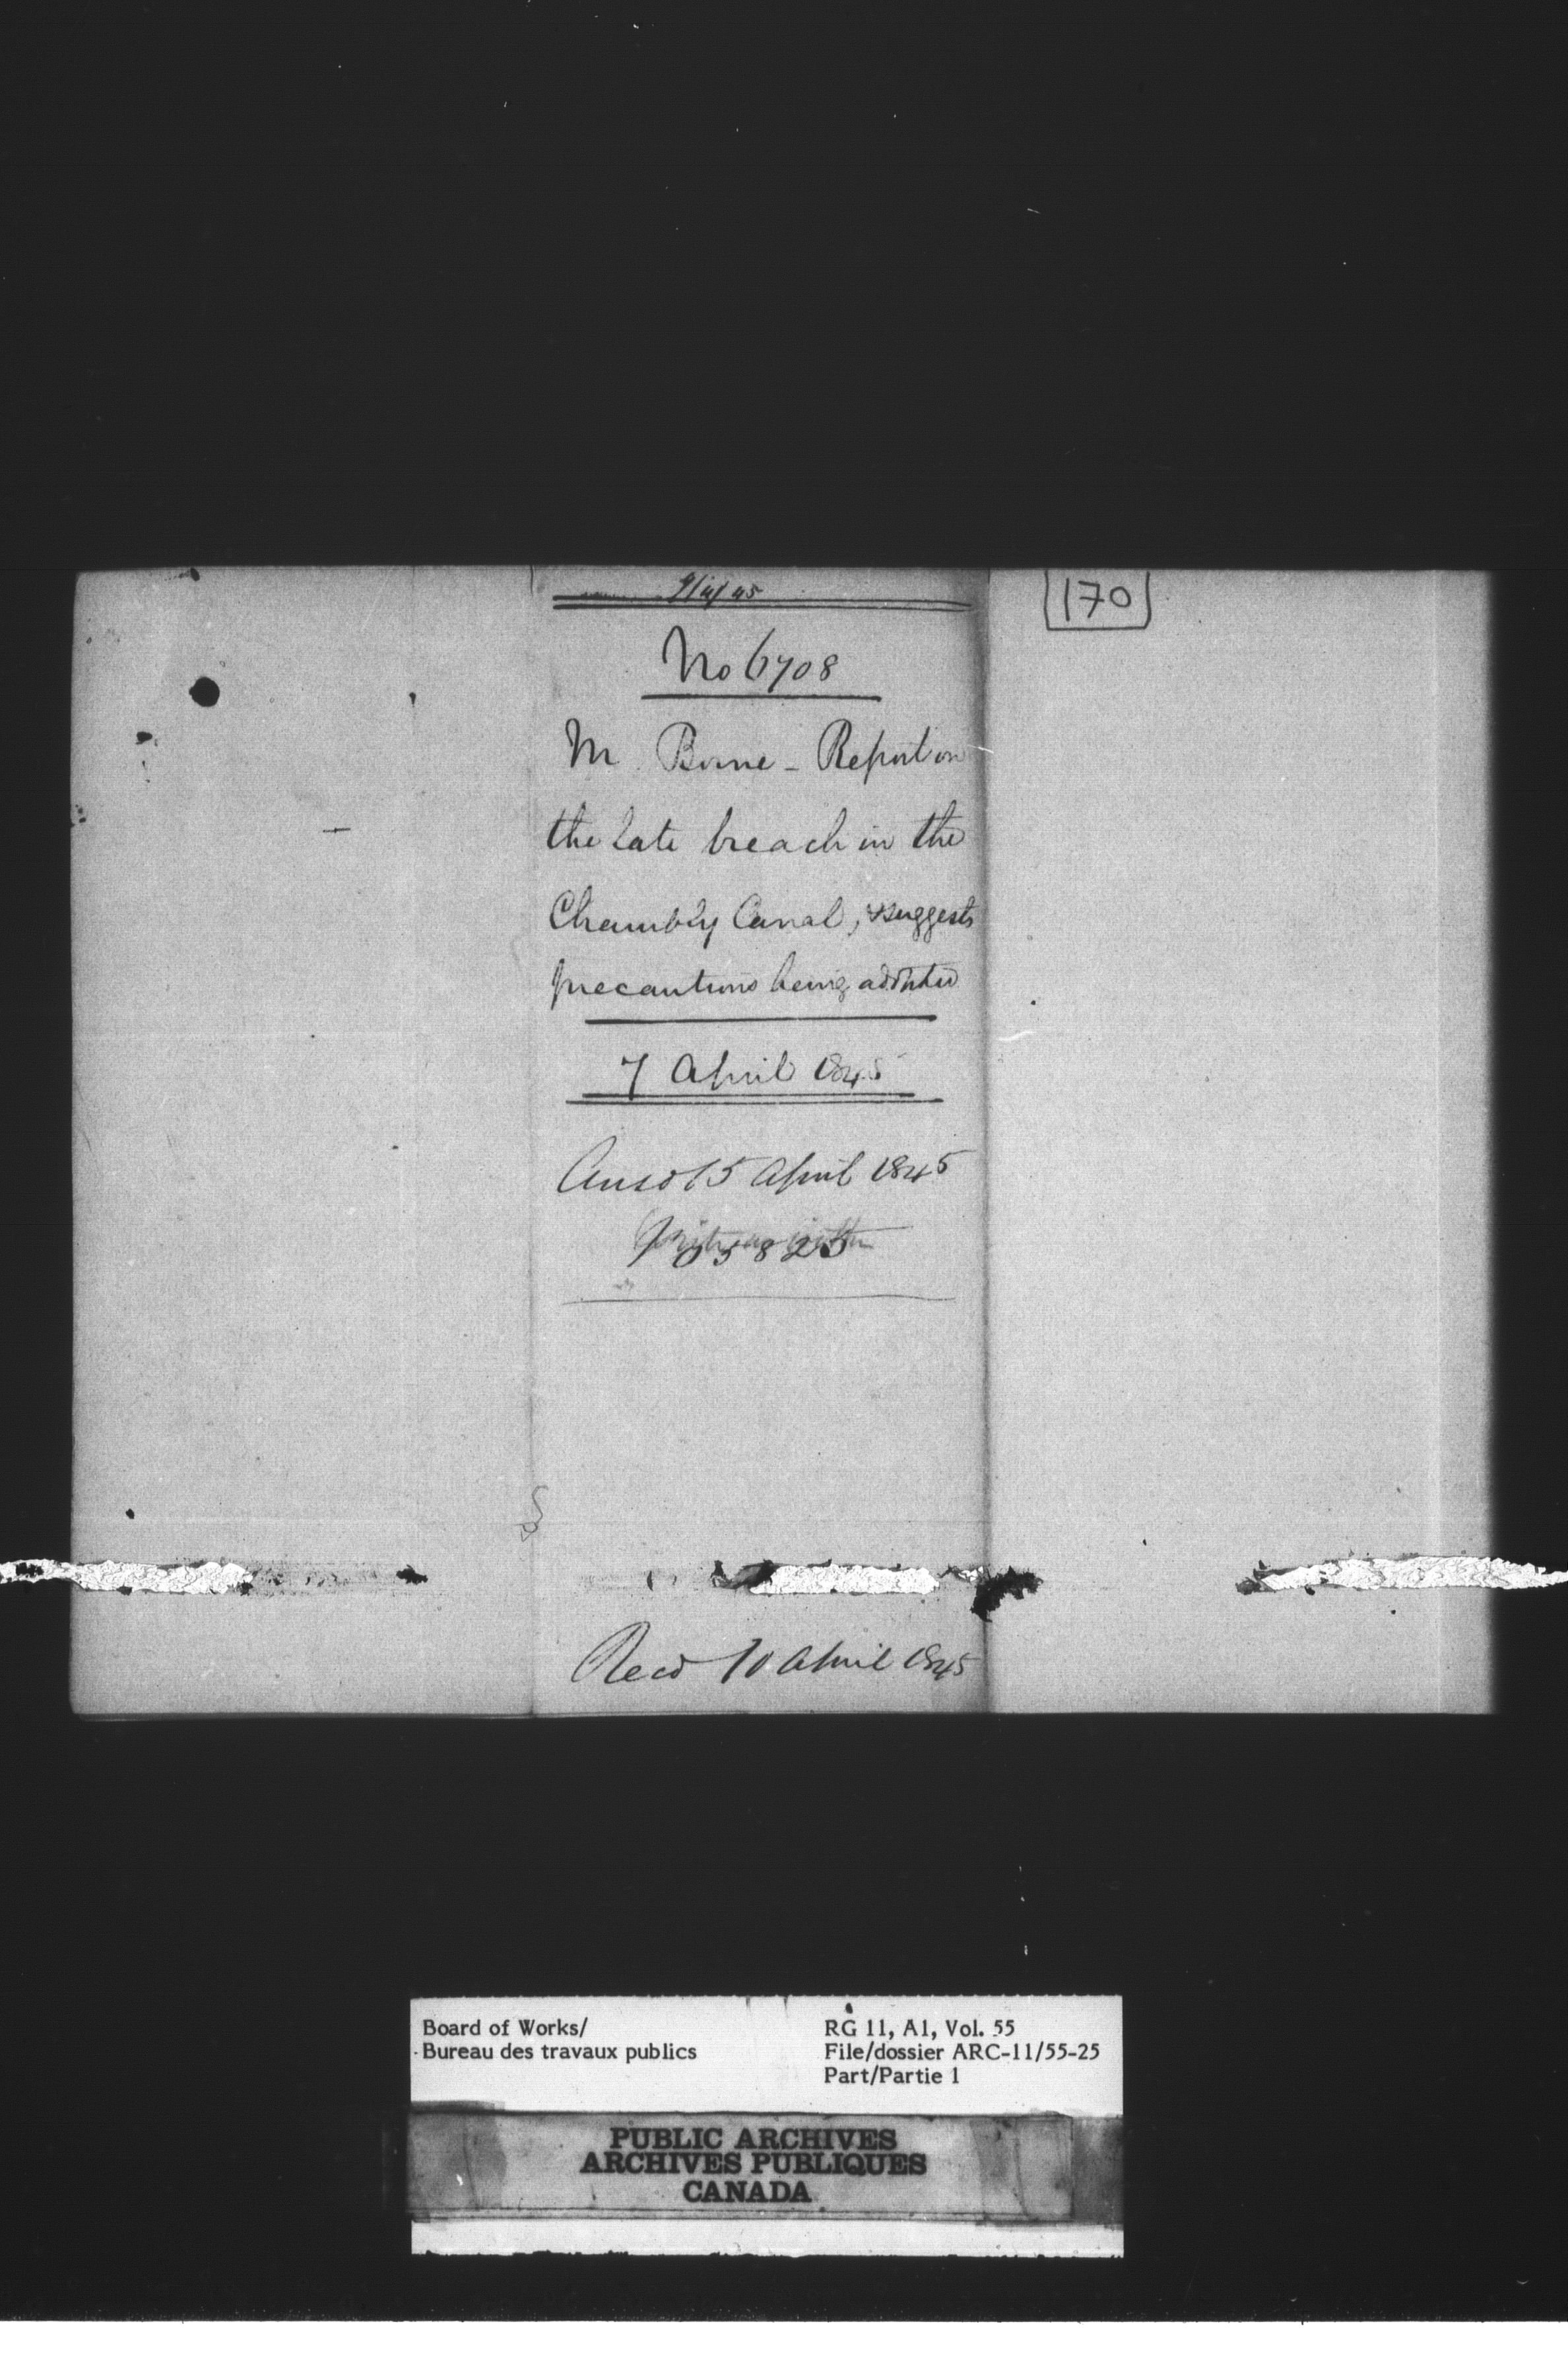 9/4/45
170
No 6708
M. Borne - Report on
the late breach in the
Chambly Canal, & suggests
precautions being adopted
7 April 1845
Ansd 15 April 1845
No 5825
Recd 10 April 1845
Board of Works/
Bureau des travaux publics
RG 11, A1, Vol. 55
File/dossier ARC-11/55-25
Part/Partie 1
PUBLIC ARCHIVES
ARCHIVES PUBLIQUES
CANADA